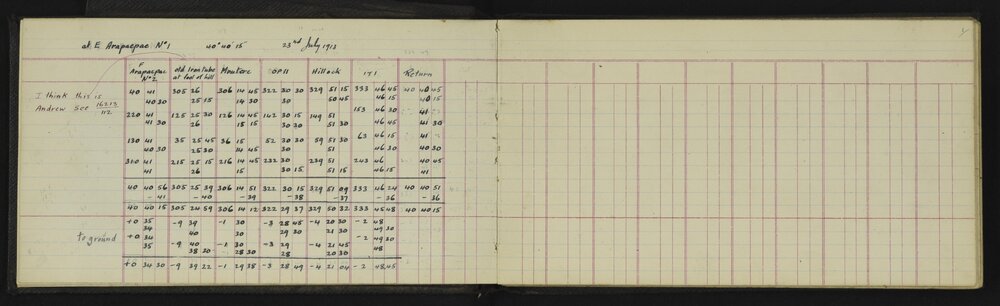 at E. Arapaepae Nº1 40° 40' 15 23rd July 1913
F Arapaepae Nº2 old Iron tube at foot of hill Moutere OP11 Hillock IT1 Return
40 41 305 26 306 14 45 322 30 30 329 51 15 333 46 45 40 40 45
40 30 25 15 14 30 30 50 45 46 15 40 15
I think this is
220 41 125 25 30 126 14 45 142 30 15 149 51 153 46 30 41
Andrew See 16213/112
41 30 26 15 15 30 30 51 30 46 45 41 30
130 41 35 25 45 36 15 52 30 30 59 51 30 63 46 15 41
40 30 25 30 14 45 30 51 46 30 40 30
310 41 215 25 15 216 14 45 232 30 239 51 243 46 40 45
41 26 15 30 15 51 15 46 15 41
40 40 56 305 25 39 306 14 51 322 30 15 329 51 09 333 46 24 40 40 51
- 41 - 40 - 39 - 38 - 37 - 36 - 36
40 40 15 305 24 59 306 14 12 322 29 37 329 50 32 333 45 48 40 40 15
+0 35 -9 39 -1 30 -3 28 45 -4 20 30 -2 48
34 40 30 29 30 21 30 49 30
to ground
+0 34 -9 40 -1 30 -3 29 -4 21 45 -2 49 30
35 38 30 28 30 28 20 30 48
+0 34 30 -9 39 22 -1 29 38 -3 28 49 -4 21 04 -2 48 45